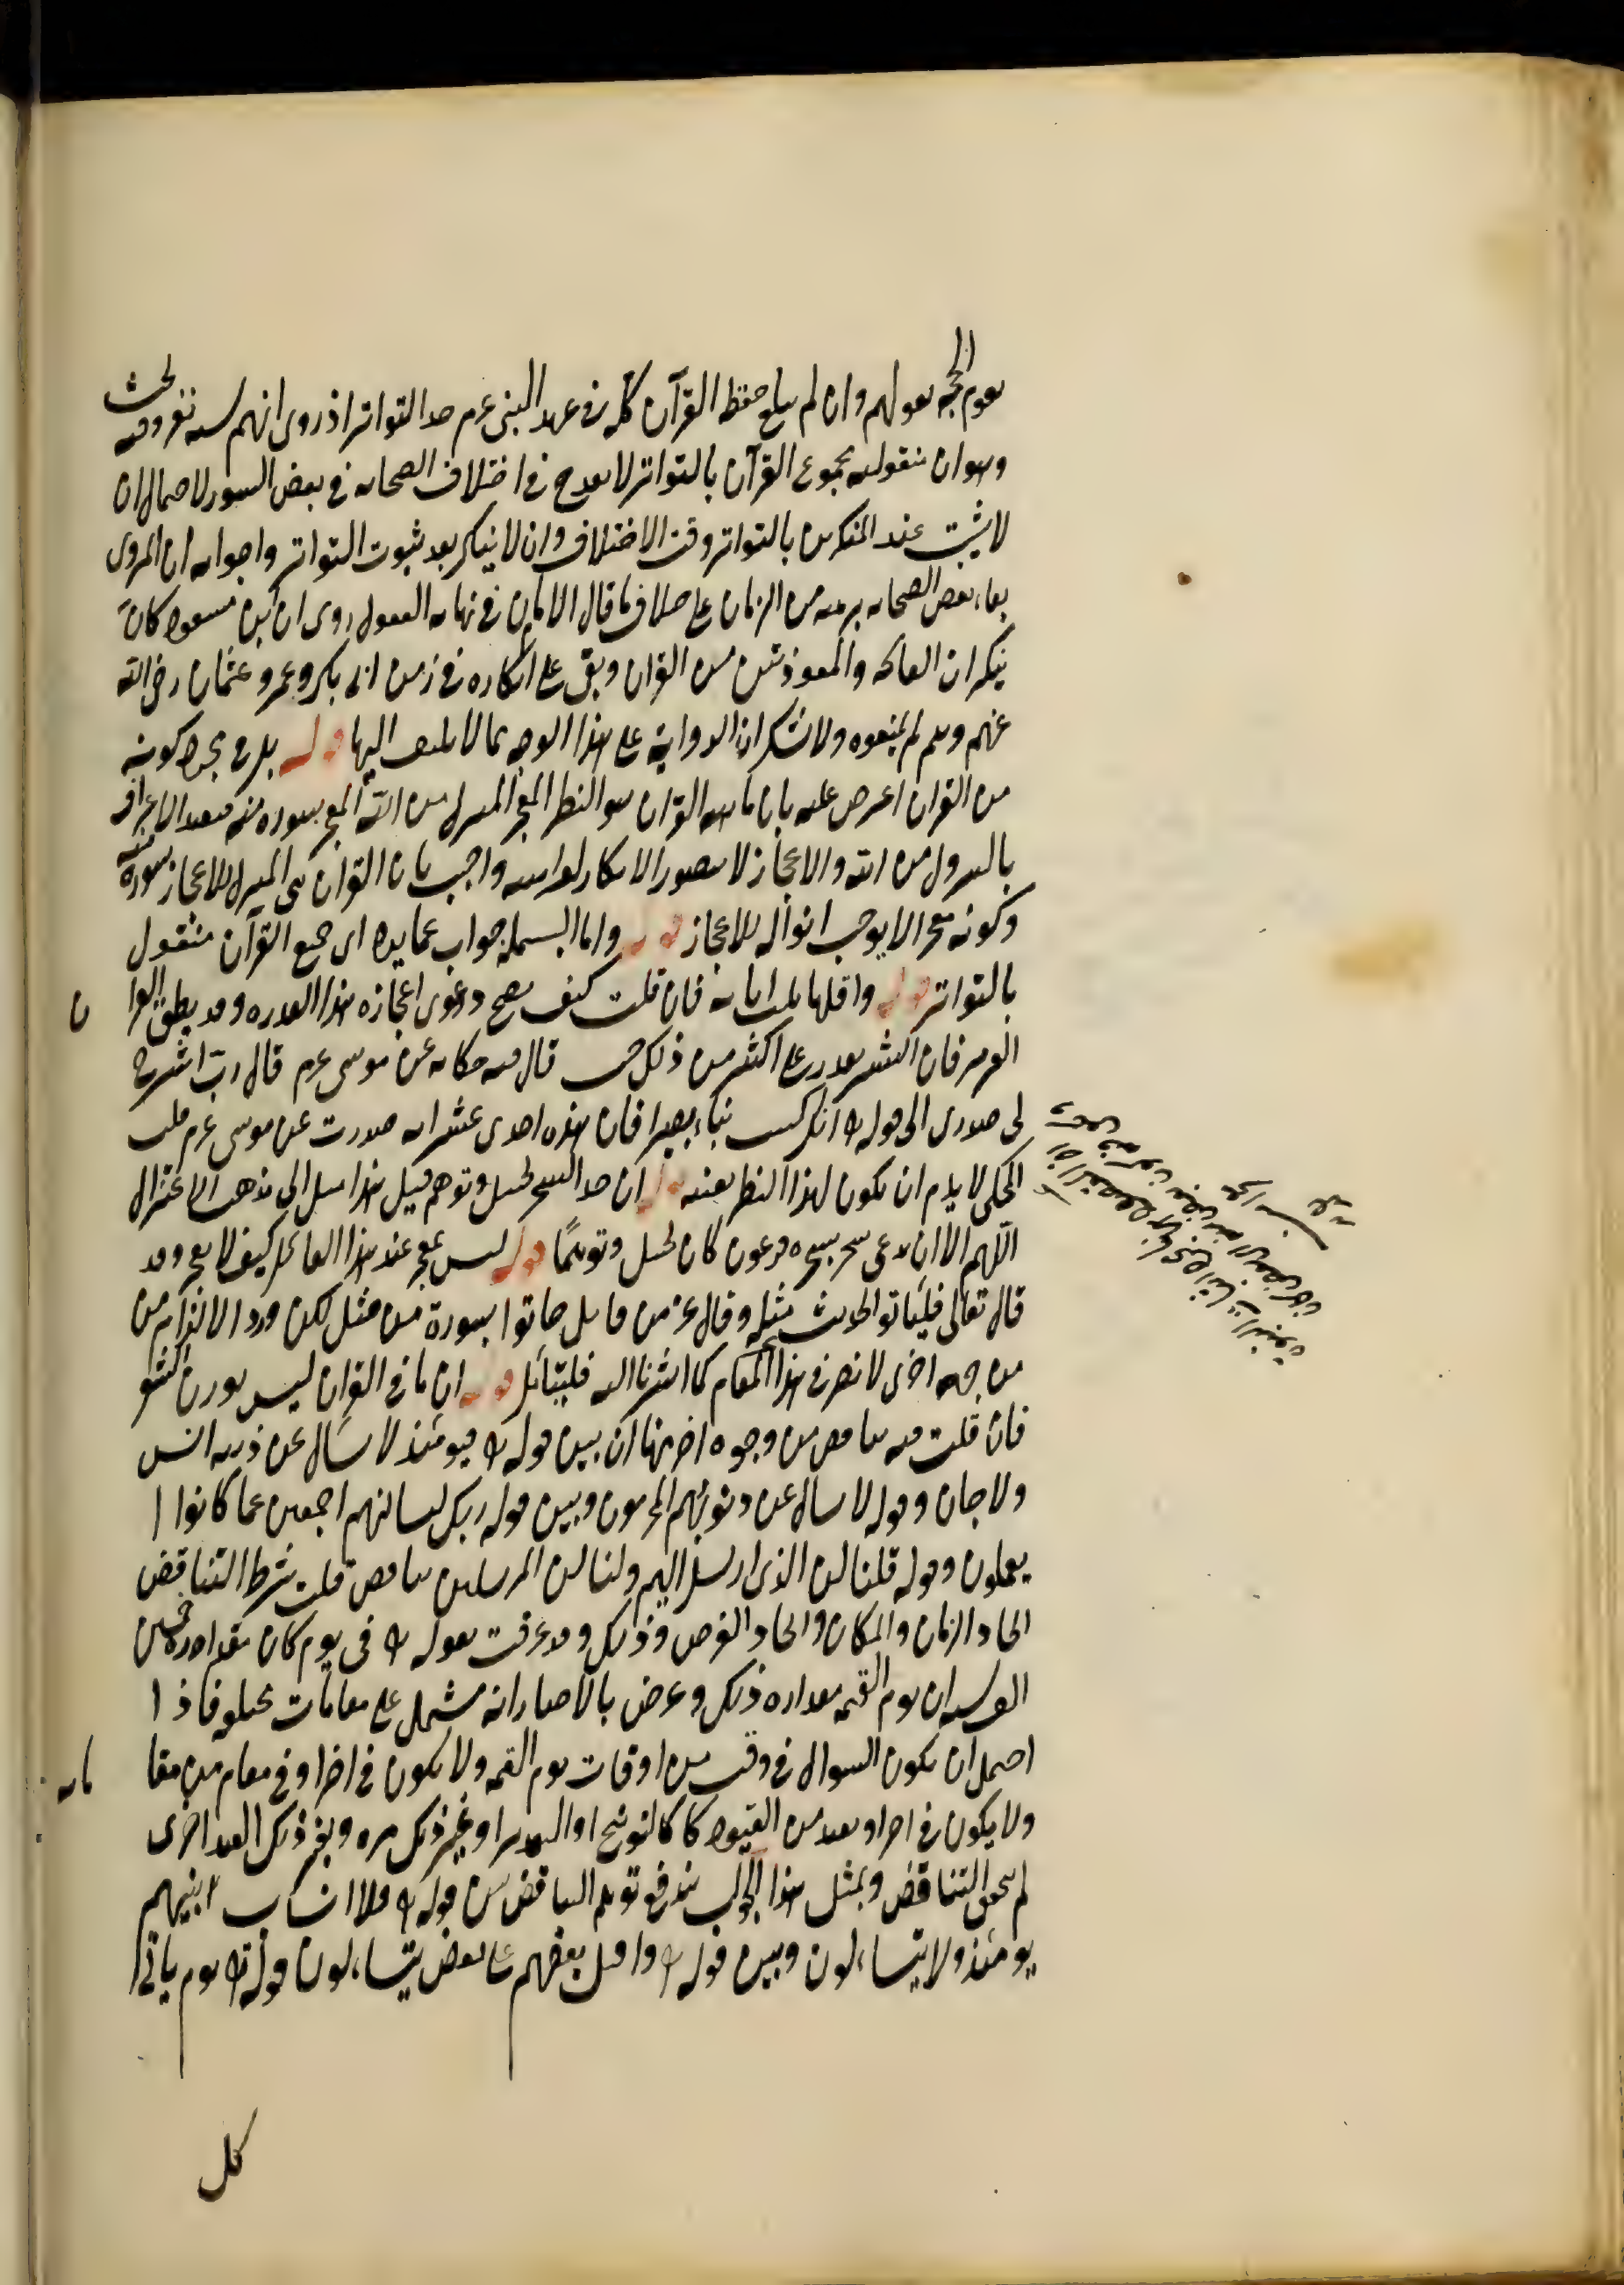 يقوم الحجة بقولهم وان لم يبلغ حفظ القرآن كله في عهد النبي عم حد التواتر اذ روى انهم ستة نفر وفيه بحث
وهو ان منقولية مجموع القرآن بالتواتر لا يقدح في اختلاف الصحابة في بعض السور لاحتمال ان
لا يثبت عند المنكرين بالتواتر وقت الاختلاف وان لا ينكر بعد ثبوت التواتر واجوابه ان المروى
بقاء بعض الصحابة برهة من الزمان على خلاف ما قال الامام في نهاية العقول روى ان ابن مسعود كان
ينكر ان الفاتحة والمعوذتين من القران وبقى على انكاره في زمن ابى بكر وعمر وعثمان رضى الله
عنهم وهم لم يمنعوه ولا شك ان الرواية على هذا الوجه مما لا يلتفت اليها قوله بل في مجرد كونه
من القران اعترض عليه بان ماهية القران هو النظم المعجز المنزل من الله المعجز بسورة منه فبعد الاعتراف
بالنزول من الله والاعجاز لا يتصور الانكار لقرانيته واجيب بان القران هى المنزل للاعجاز بسورة منه
وكونه معجزا لا يوجب انزاله للاعجاز قوله واما البسملة جواب عما يرد اى جميع القرآن منقول
بالتواتر قوله واقلها ثلث ايات فان قلت كيف يصح دعوى اعجازه هذا القدره وقد يطق القرا
ن
العزيز فان البشر يقدر على اكثر من ذلك حيث قال فيه حكاية عن موسى عم قال رب اشرح
لى صدرى الى قوله تع انك كنت بنا بصيرا فان هذه احدى عشر اية صدرت عن موسى عم قلت
المحكى لا يلزم ان يكون لهذا النظم بعينه قوله ان حد السحر تخييل وتوهم قيل هذا ميل الى مذهب الاعتزال
اللهم الا ان يدعى سحر سحرة فرعون كان تخييل وتوهما قوله ليس بمعجز عند هذا القائل كيف لا يعجز وقد
قال تعالى فليأتوا بحديث مثله وقال عز من قائل فأتوا بسورة من مثله لكن ورود الالزام من
من جهة اخرى لا تضر في هذا المقام كما اشرنا اليه فليتأمل قوله ان ما في القران ليس بوزن الشعر
فان قلت فيه تناقض من وجوه اخر منها ان بين قوله تع فيومئذ لا يسأل عن ذنبه انس
ولا جان وقوله لا يسأل عن ذنوبهم المجرمون وبين قوله ربك لنسألنهم اجمعين عما كانوا
يعملون وقوله فلنسألن الذى ارسل اليهم ولنسألن المرسلين تناقض قلت شرط التناقض
اتحاد الزمان والمكان واتحاد الغرض وذلك وقد عرفت بقوله تع في يوم كان مقداره خمسين
الف سنة ان يوم القيمة مقداره ذلك وعرض بالاخبار انه مشتمل على مقامات مختلفة فاذا
احتمل ان يكون السوال في وقت من اوقات يوم القيمة ولا يكون في اخر او في مقام من مقا
ماته
ولا يكون في اخر او بقيد من القيود كا كالتوبيخ او التهديد او غير ذلك مرة وبغير ذلك القيد اخرى
لم يتحقق التناقض وبمثل هذا الجواب يندفع توهم التناقض بين قوله تع فلا انساب بينهم
يومئذ ولا يتساءلون وبين قوله تع واقبل بعضهم على بعض يتساءلون وقوله تع يوم يأتى
كل